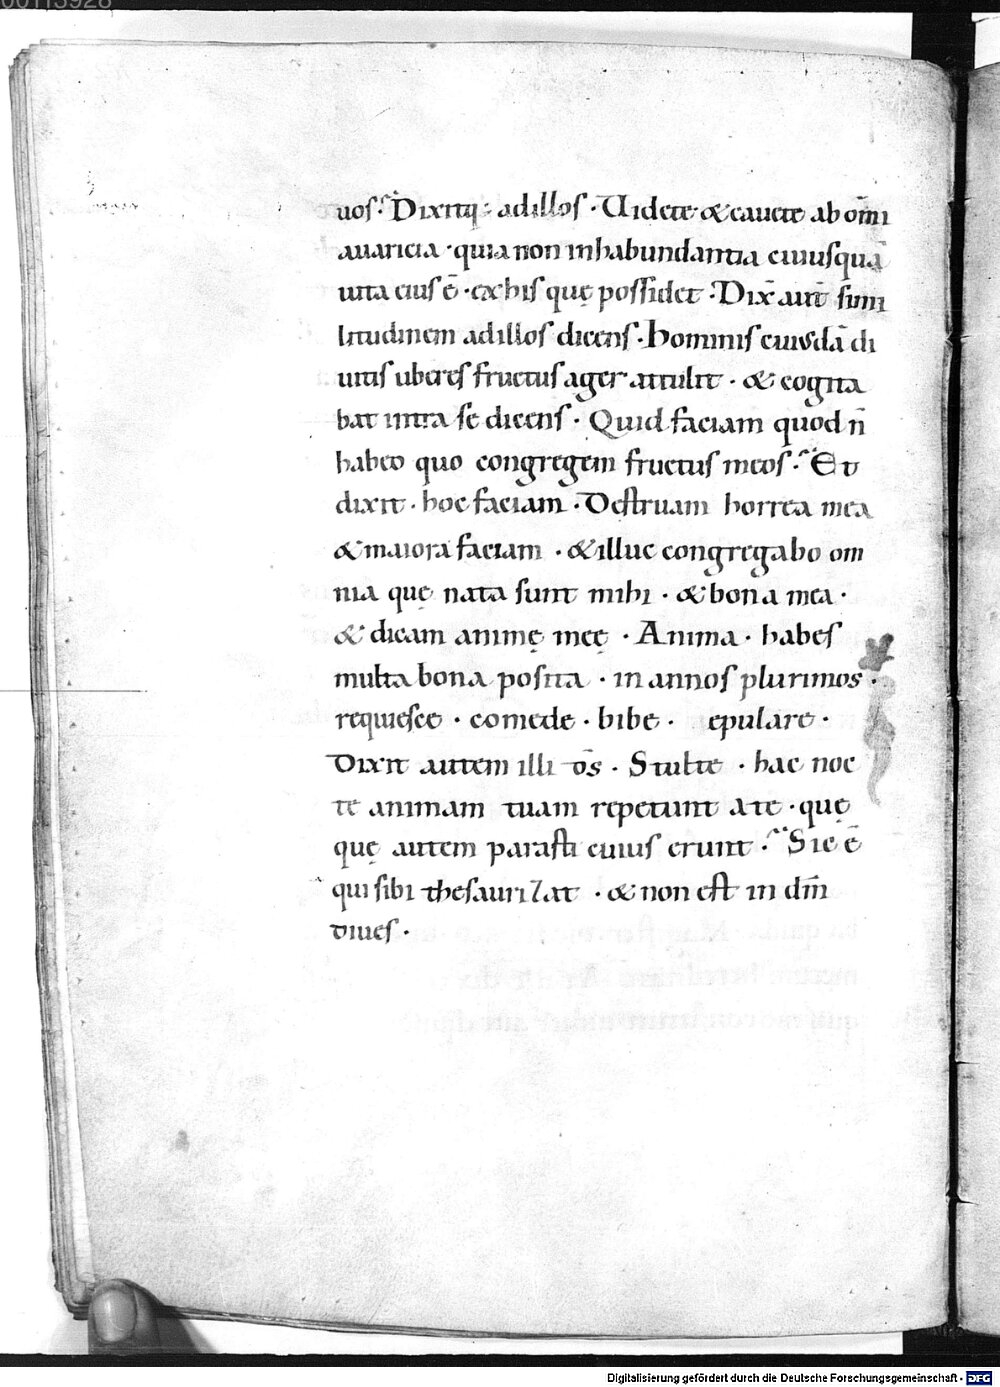 00113928
uos. Dixitq; adillos. Uidete & cauete ab om̄i
auaricia. quia non inhabundantia cuiusquā
uita eius ē. ex his quę possidet. Dix̄ aut̄ simi
litudinem adillos dicens. Hominis cuiusdā di
uitis uberes fructus ager attulit. & cogita
bat intra se dicens. Quid faciam quod n̄
habeo quo congregem fructus meos. Et
dixit. hoc faciam. Destruam horrea mea
& maiora faciam. & illuc congregabo om
nia quę nata sunt mihi. & bona mea.
& dicam animę meę. Anima. habes
multa bona posita. in annos plurimos.
requiesce. comede. bibe. epulare.
Dixit autem illi d̄s. Stulte. hac noc
te animam tuam repetunt a te. quę
quę autem parasti cuius erunt. Sic ē
qui sibi thesaurizat. & non est in dm̄
diues.
Digitalisierung gefördert durch die Deutsche Forschungsgemeinschaft - DFG